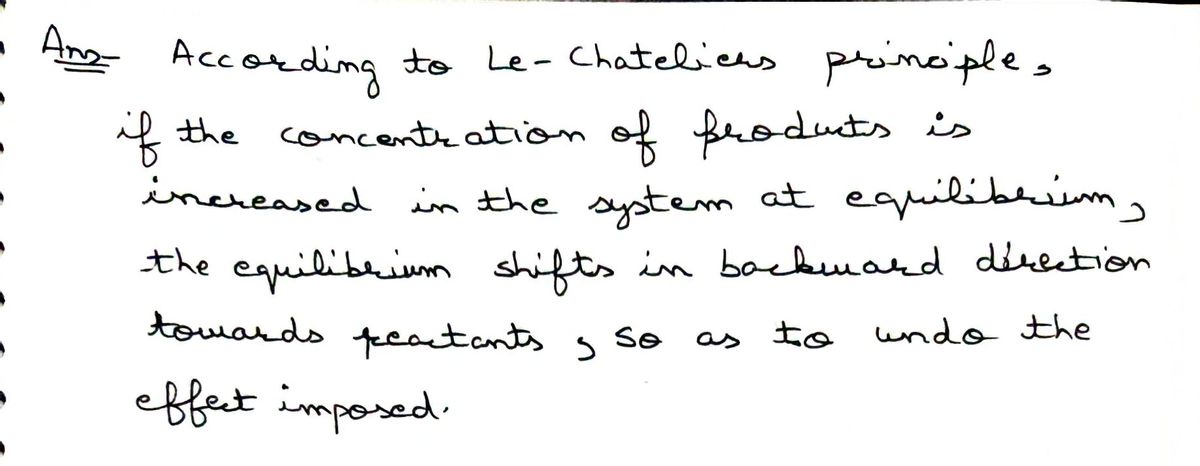 Ans- According to Le-Chateliers principle,
if the concentration of products is
increased in the system at equilibrium,
the equilibrium shifts in backward direction
towards reactants, so as to undo the
effect imposed.